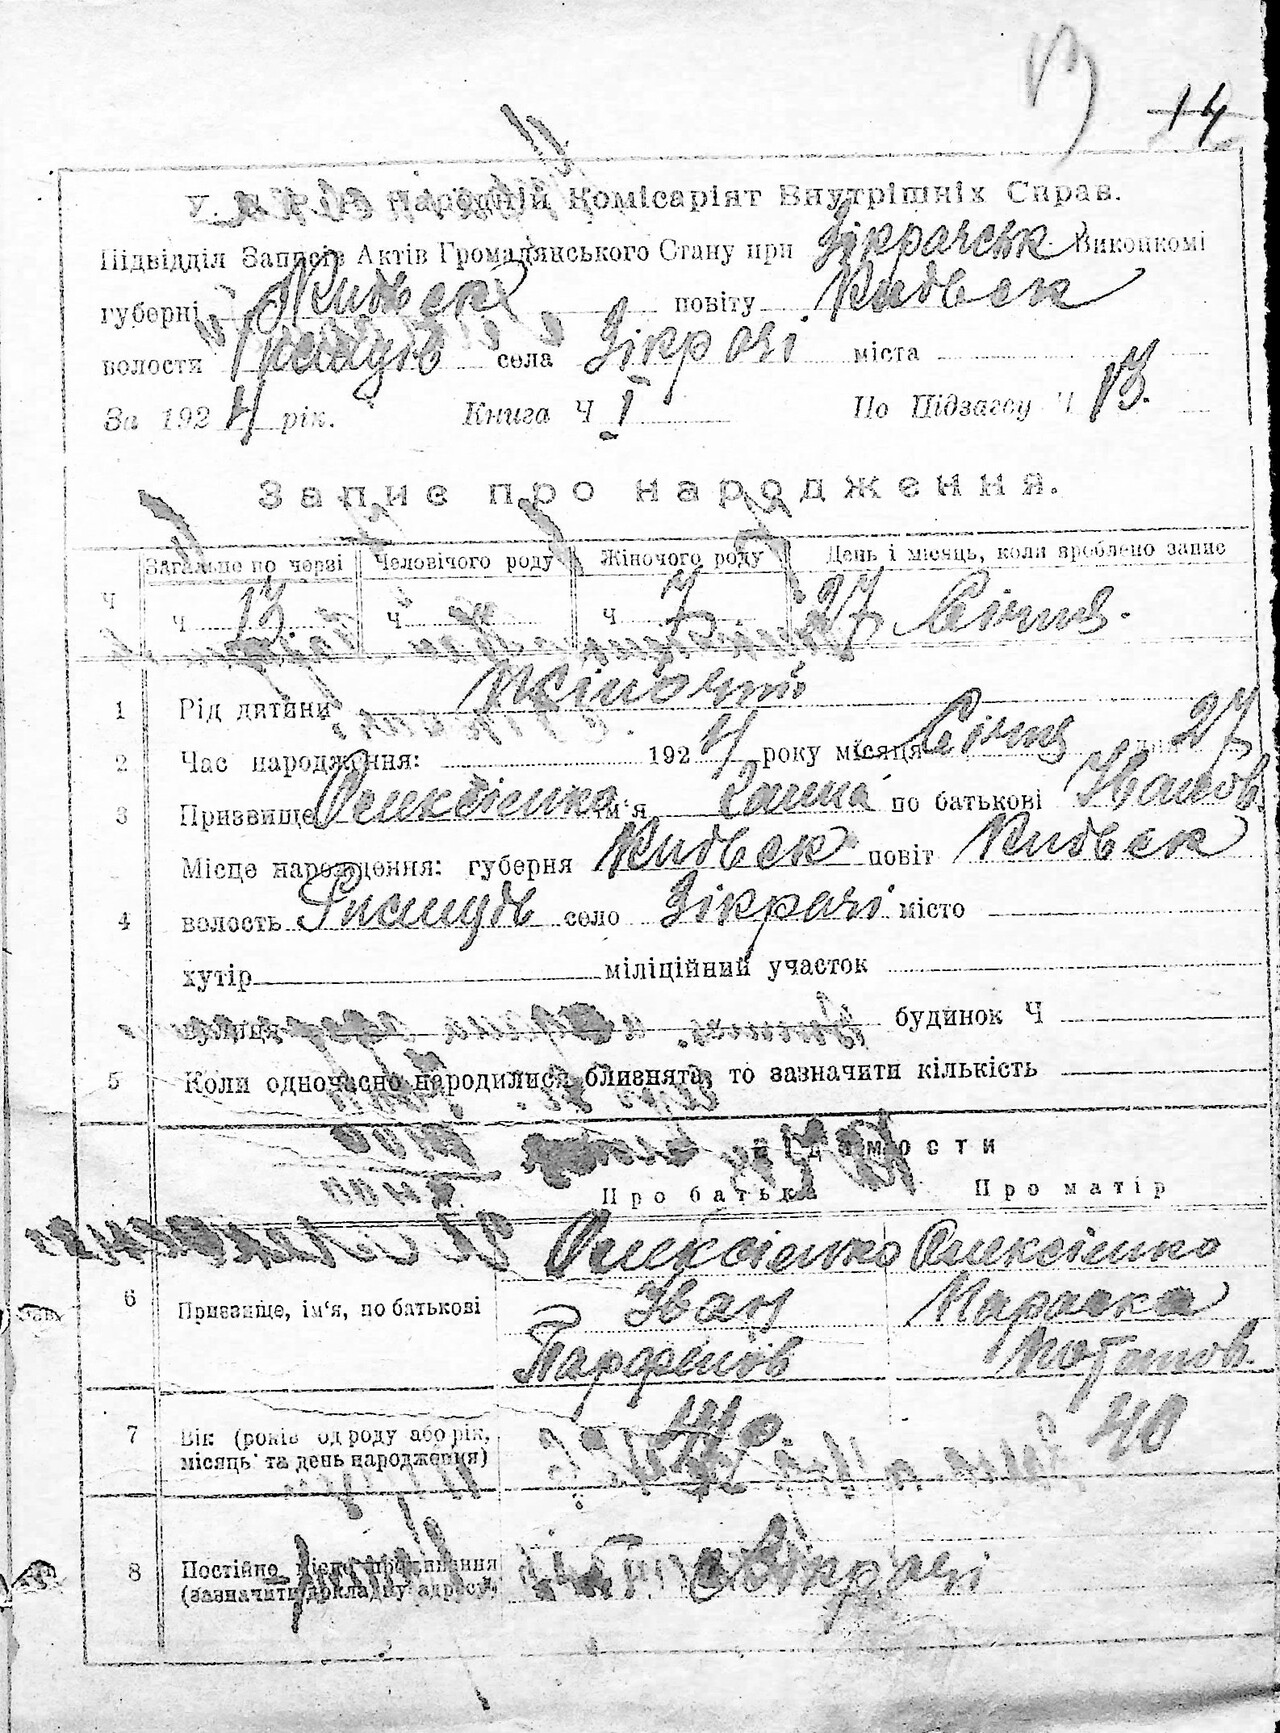 13
14
Народній Комісаріят Внутрішніх Справ.
Підвідділ Записів Актів Громадянського Стану при Зікрачськ Виконкомі
губерні Київськ повіту Київськ
волости села Зікрачі міста
За 1924 рік. Книга Ч I По Підзагсу Ч 13.
Запис про народження.
Загально по черзі Чоловічого роду Жіночого роду День і місяць, коли зроблено запис
Ч Ч 13 Ч " Ч 7 27 Січня.
1 Рід дитини Жіночий
2 Час народження: 1924 року місяця Січня дня 27
3 Призвище Олексієнко ім'я Ганна по батькові Іванов.
Місце народження: губерня Київськ повіт Київськ
4 волость село Зікрачі місто
хутір міліційний участок
вулиця будинок Ч
5 Коли одночасно народилися близнята, то зазначити кількість
Відамости
Про батька Про матір
Олексієнко Олексієнко
6 Призвище, ім'я, по батькові Іван Мариска
Парфенов Потапов.
7 Вік (років од роду або рік, 40 40
місяць та день народження)
8 Постійне місце проживання с Зікрачі
(зазначити докладну адресу)